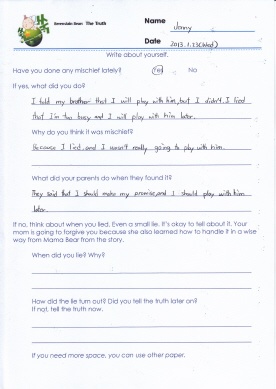 Berenstain Bears The Truth
Name Jenny
Date 2013.1.23(Wed)
Write about yourself.
Have you done any mischief lately? Yes No
If yes, what did you do?
I told my brother that I will play with him, but I didn't. I lied
that I'm too busy and I will play with him later.
Why do you think it was mischief?
Because I lied and I wasn't really going to play with him.
What did your parents do when they found it?
They said that I should make my promise, and I should play with him
later.
If no, think about when you lied. Even a small lie. It's okay to tell about it. Your
mom is going to forgive you because she also learned how to handle it in a wise
way from Mama Bear from the story.
When did you lie? Why?
How did the lie turn out? Did you tell the truth later on?
If not, tell the truth now.
If you need more space, you can use other paper.